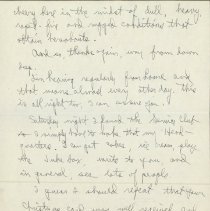 cheery here in the midst of dull, heavy
and muggy conditions that
obtain
And so, thanks again, way from down
deep.
I'm hearing regularly from home and
that means almost every other day. this
is all right too, I can assure you.
Saturday night I found the Service Club
so I simply had to make that my Head-
quarters. I can get cokes, ice cream, play
the Juke box, write to you and
in general, see lots of people.
I guess I should repeat that your
Christmas card was well received and